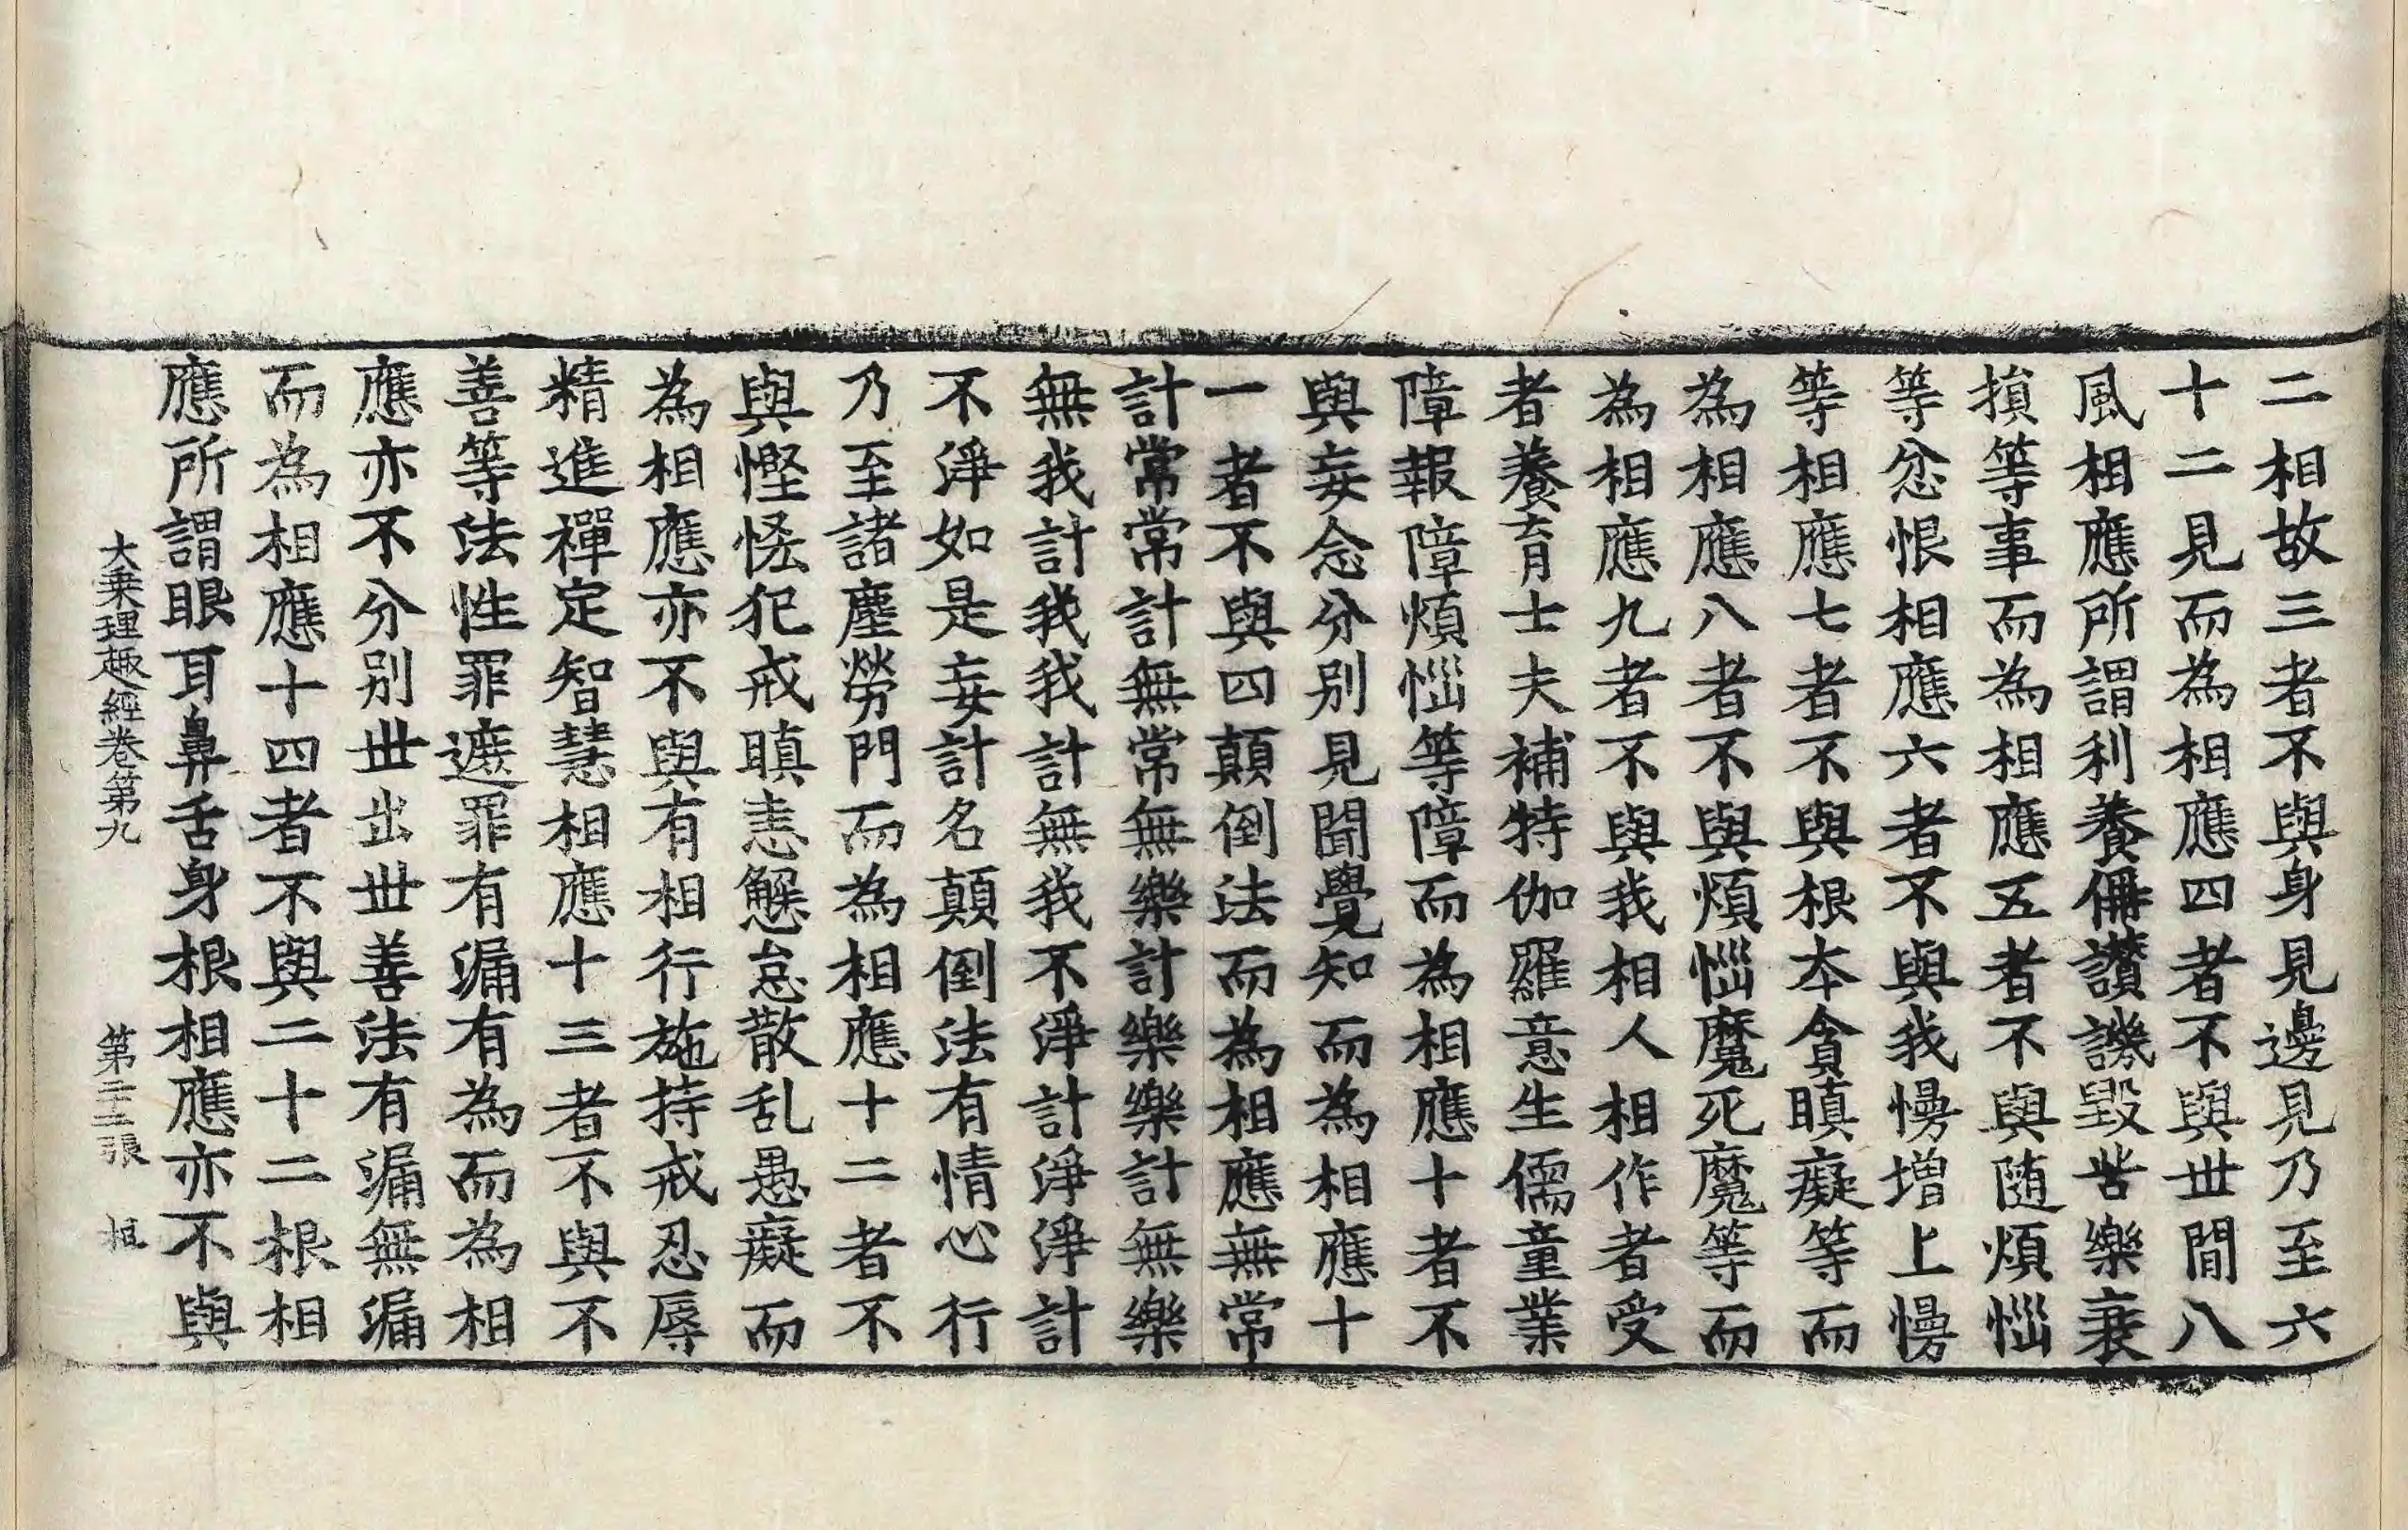 二相故三者不與身見邊見乃至六
十二見而為相應四者不與丗間八
風相應所謂利養偁讃譏毀苦樂衰
損等事而為相應五者不與随煩惱
等忿恨相應六者不與我慢增上慢
等相應七者不與根夲貪瞋癡等而
為相應八者不與煩惱魔死魔等而
為相應九者不與我相人相作者受
者養育士夫補特伽羅意生儒童業
障報障煩惱等障而為相應十者不
與妄念分別見聞覺知而為相應十
一者不與四顛倒法而為相應無常
計常常計無常無樂計樂樂計無樂
無我計我我計無我不淨計淨淨計
不淨如是妄計名顛倒法有情心行
乃至諸塵勞門而為相應十二者不
與慳悋犯戒瞋恚懈怠散乱愚癡而
為相應亦不與有相行施持戒忍辱
精進禪定智慧相應十三者不與不
善等法性罪遮罪有漏有為而為相
應亦不分別丗出丗善法有漏無漏
而為相應十四者不與二十二根相
應所謂眼耳鼻舌身根相應亦不與
大乗理趣經卷第九 第二十二張 桓